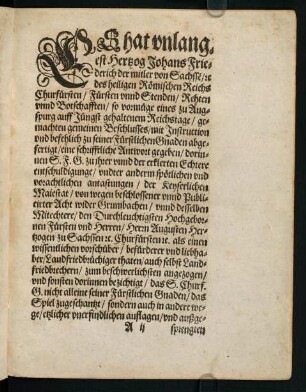 ES hat vnlang-
est Hertzog Johans Frie-
derich der mitler von Sachsē/ ꝛc
des heiligen Römischen Reichs
Churfürsten / Fürsten vnnd Stenden / Rehten
vnnd Botschafften / so vormüge eines zu Aug-
spurg auff Jüngst gehaltenem Reichstage / ge-
machten gemeinen Beschlusses / mit Instruction
vnd befehlich zu seiner Fürstlichen Gnaden abge-
fertigt / eine schrifftliche Antwort gegeben / dorin-
nen S. F. G. zu jhrer vnnd der erklerten Echtere
entschuldigunge / vnder anderm spötlichen vnd
vorachtlichen antastungen / der Keyserlichen
Maiestat / von wegen beschlossener vnnd Publi-
cirter Acht wider Grumbachen / vnnd desselben
Mitechtere / den Durchleuchtigsten Hochgebor-
nen Fürsten vnd Herren / Herrn Augusten Her-
tzogen zu Sachssen ꝛc. Churfürsten ꝛc. als einen
wissentlichen vorschüber / befürderer vnd liebha-
ber / Landfriedbrüchiger thaten / auch selbst Land-
friedbrechern / zum beschwerlichsten angezogen /
vnd sonsten dorinnen bezichtige / das S. Churf.
G. nicht alleine seiner Fürstlichen Gnaden / das
Spiel zugeschantzt / sondern auch in andere we-
ge / etzlicher vnerfindlichen aufflagen / vnd außge-
A ij
sprengten